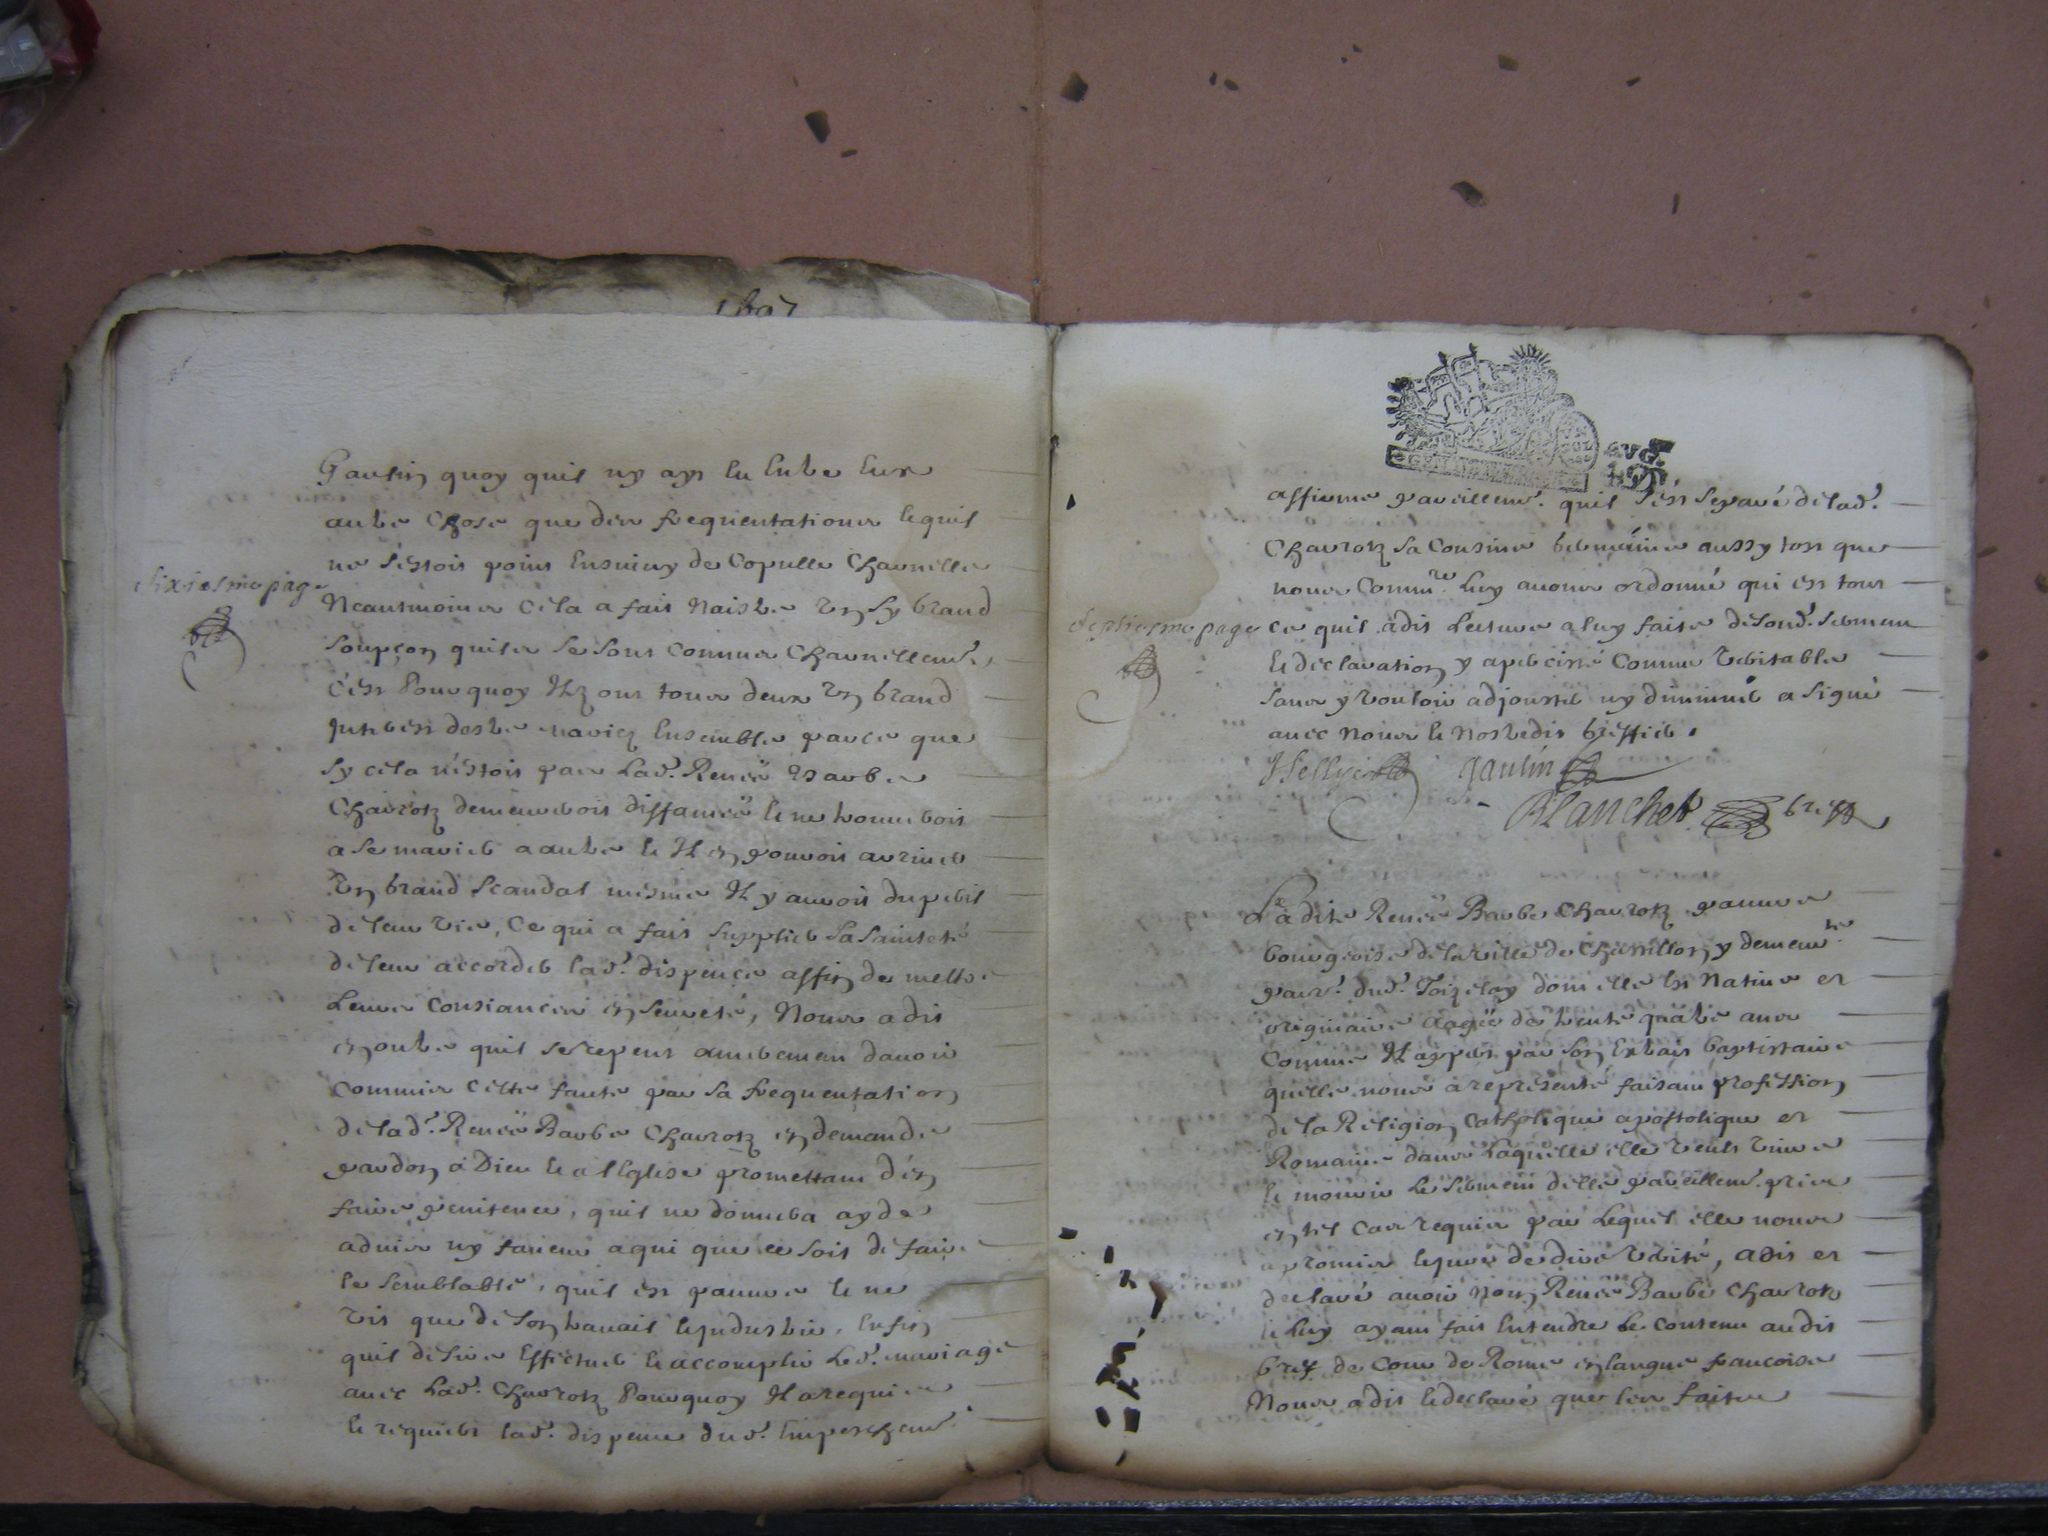 1697
Gaulin quoy quil ny ayt eu entre eux
autre chose que des frequentations et quil
ne sestoit point ensuivy de copulle charnelle
sixiesme page
Neantmoins cela a fait naistre un sy grand
soupçon quils se sont connus charnellemt,
c'est pourquoy Ilz ont tous deux un grand
Interest destre mariez ensemble parce que
sy cela n'estoit pas lad. Renée Barbe
Charrotz demeureroit diffamée et ne trouveroit
a se marier a autre et Il en pouvoit arriver
un grand scandal mesme Il y auroit du peril
de leur vie, ce qui a fait supplier sa sainteté
de leur accorder lad. dispence affin de mettre
leurs consiances en seureté, Nous a dit
en outre quil se repent amerement davoir
commis cette faute par sa frequentation
de lad. Renée Barbe Charrotz en demande
pardon a Dieu et a l'Eglise promettant d'en
faire penitence, quil ne donnera ayde
advis ny faveur a qui que ce soit de faire
le semblable, quil est pauvre et ne
vit que de son travail et Industrie, enfin
quil desire effectuer et accomplir led. mariage
avec lad. Charrotz pourquoy Il a requis
et requiert lad. dispence dud. empeschemt
AVG.
affirme pareillemt. quil s'est separé de lad.
Charrotz sa cousine germaine aussy tost que
nous Commre. luy avons ordonné qui est tout
septiesme page
ce quil a dit lecture a luy faite de sond. serment
et declaration y a persisté comme veritable
sans y vouloir adjouster ny diminuer a signé
avec nous et nostredit greffier.
gaulin
Blanchet greff
Ladite Renée Barbe Charrotz pauvre
bourgeoise de la ville de Chastillon y demeurte
parr. dud. dont elle est Native et
originaire aagée de trente quatre ans
comme Il appert par son Extrait baptistaire
quelle nous a representé faisant profession
de la Religion catholique apostolique et
Romaine dans laquelle elle veult vivre
et mourir le serment d'elle pareillemt. pris
en tel cas requis par lequel elle nous
a promis et juré de dire verité, a dit et
declaré avoir nom Renée Barbe Charrotz
et luy ayant fait entendre le contenu audit
bref de cour de Rome en langue francoise
Nous a dit et declaré que les faits